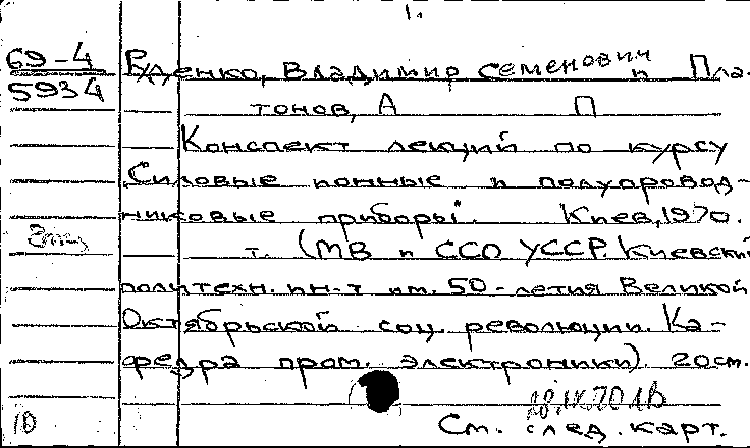 1.
69-4
5934
Руденко, Владимир Семенович и Пла-
тонов, А П
Конспект лекций по курсу
"Силовые ионные и полупровод-
никовые приборы". Киев, 1970.
т. (МВ и ССО УССР. Киевский
политехн. ин-т им. 50-летия Великой
Октябрьской соц. революции. Ка-
федра пром. электроники). 20см.
28.IX.70
См. след. карт.